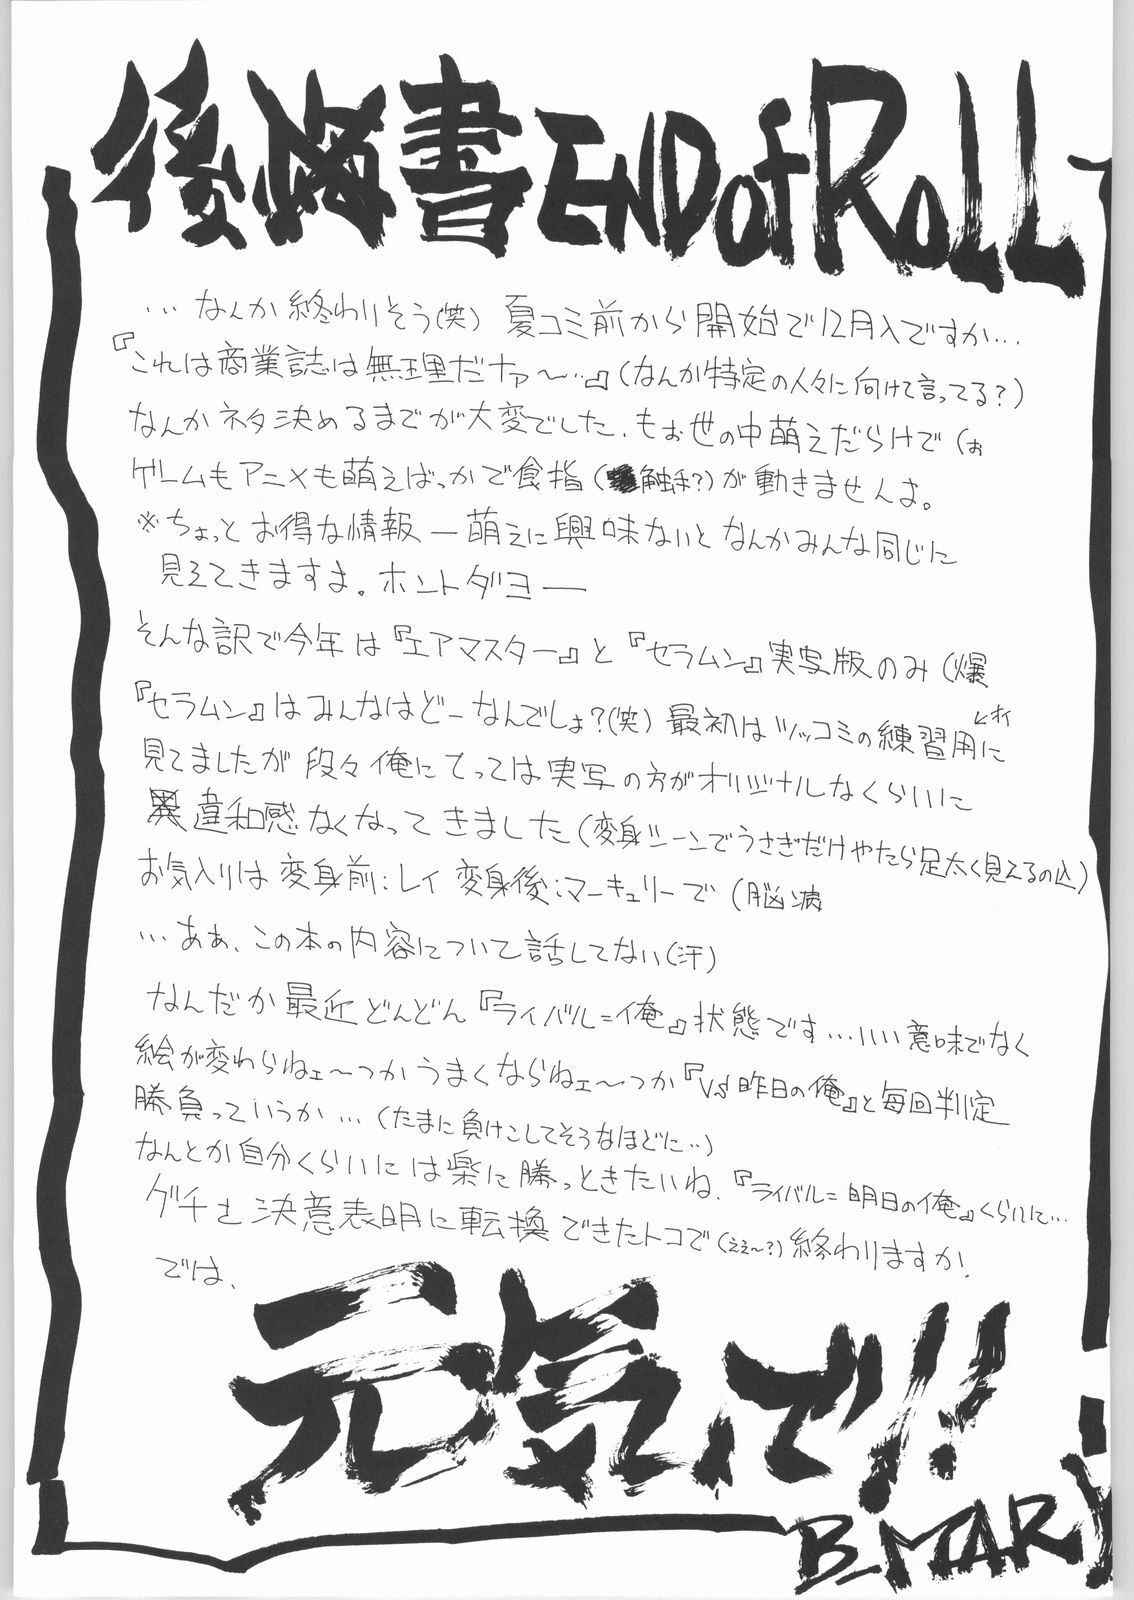 後悔書 END of RoLL
…なんか終わりそう(笑) 夏コミ前から開始で12月入ですか…
『これは商業誌は無理だナァ〜…』(なんか特定の人々に向けて言ってる?)
なんかネタ決めるまでが大変でした、もぉ世の中萌えだらけで(ぉ
ゲームもアニメも萌えばっかで食指(触手?)が動きませんよ。
※ちょっとお得な情報―萌えに興味ないとなんかみんな同じに
見えてきますよ。ホントダヨ―
そんな訳で今年は『エアマスター』と『セラムン』実写版のみ(爆
『セラムン』はみんなはどーなんでしょ?(笑) 最初はツッコミの練習用に
←オイ
見てましたが段々俺にとっては実写の方がオリジナルなくらいに
違和感なくなってきました(変身シーンでうさぎだけやたら足太く見えるの込)
お気入りは変身前:レイ 変身後:マーキュリーで(脳病
…ああ、この本の内容について話してない(汗)
なんだか最近どんどん『ライバル=俺』状態です…いい意味でなく
絵が変わらねェ〜つかうまくならねェ〜つか『VS昨日の俺』と毎回判定
勝負っていうか…(たまに負けこしてそうなほどに…)
なんとか自分くらいには楽に勝っときたいね、『ライバル=明日の俺』くらいに…
グチを決意表明に転換できたトコで(ええ〜?)終わりますか。
では、
元気で!!
B_MARY